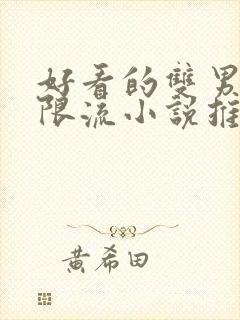 好看的雙男
限流小說推
黃希田